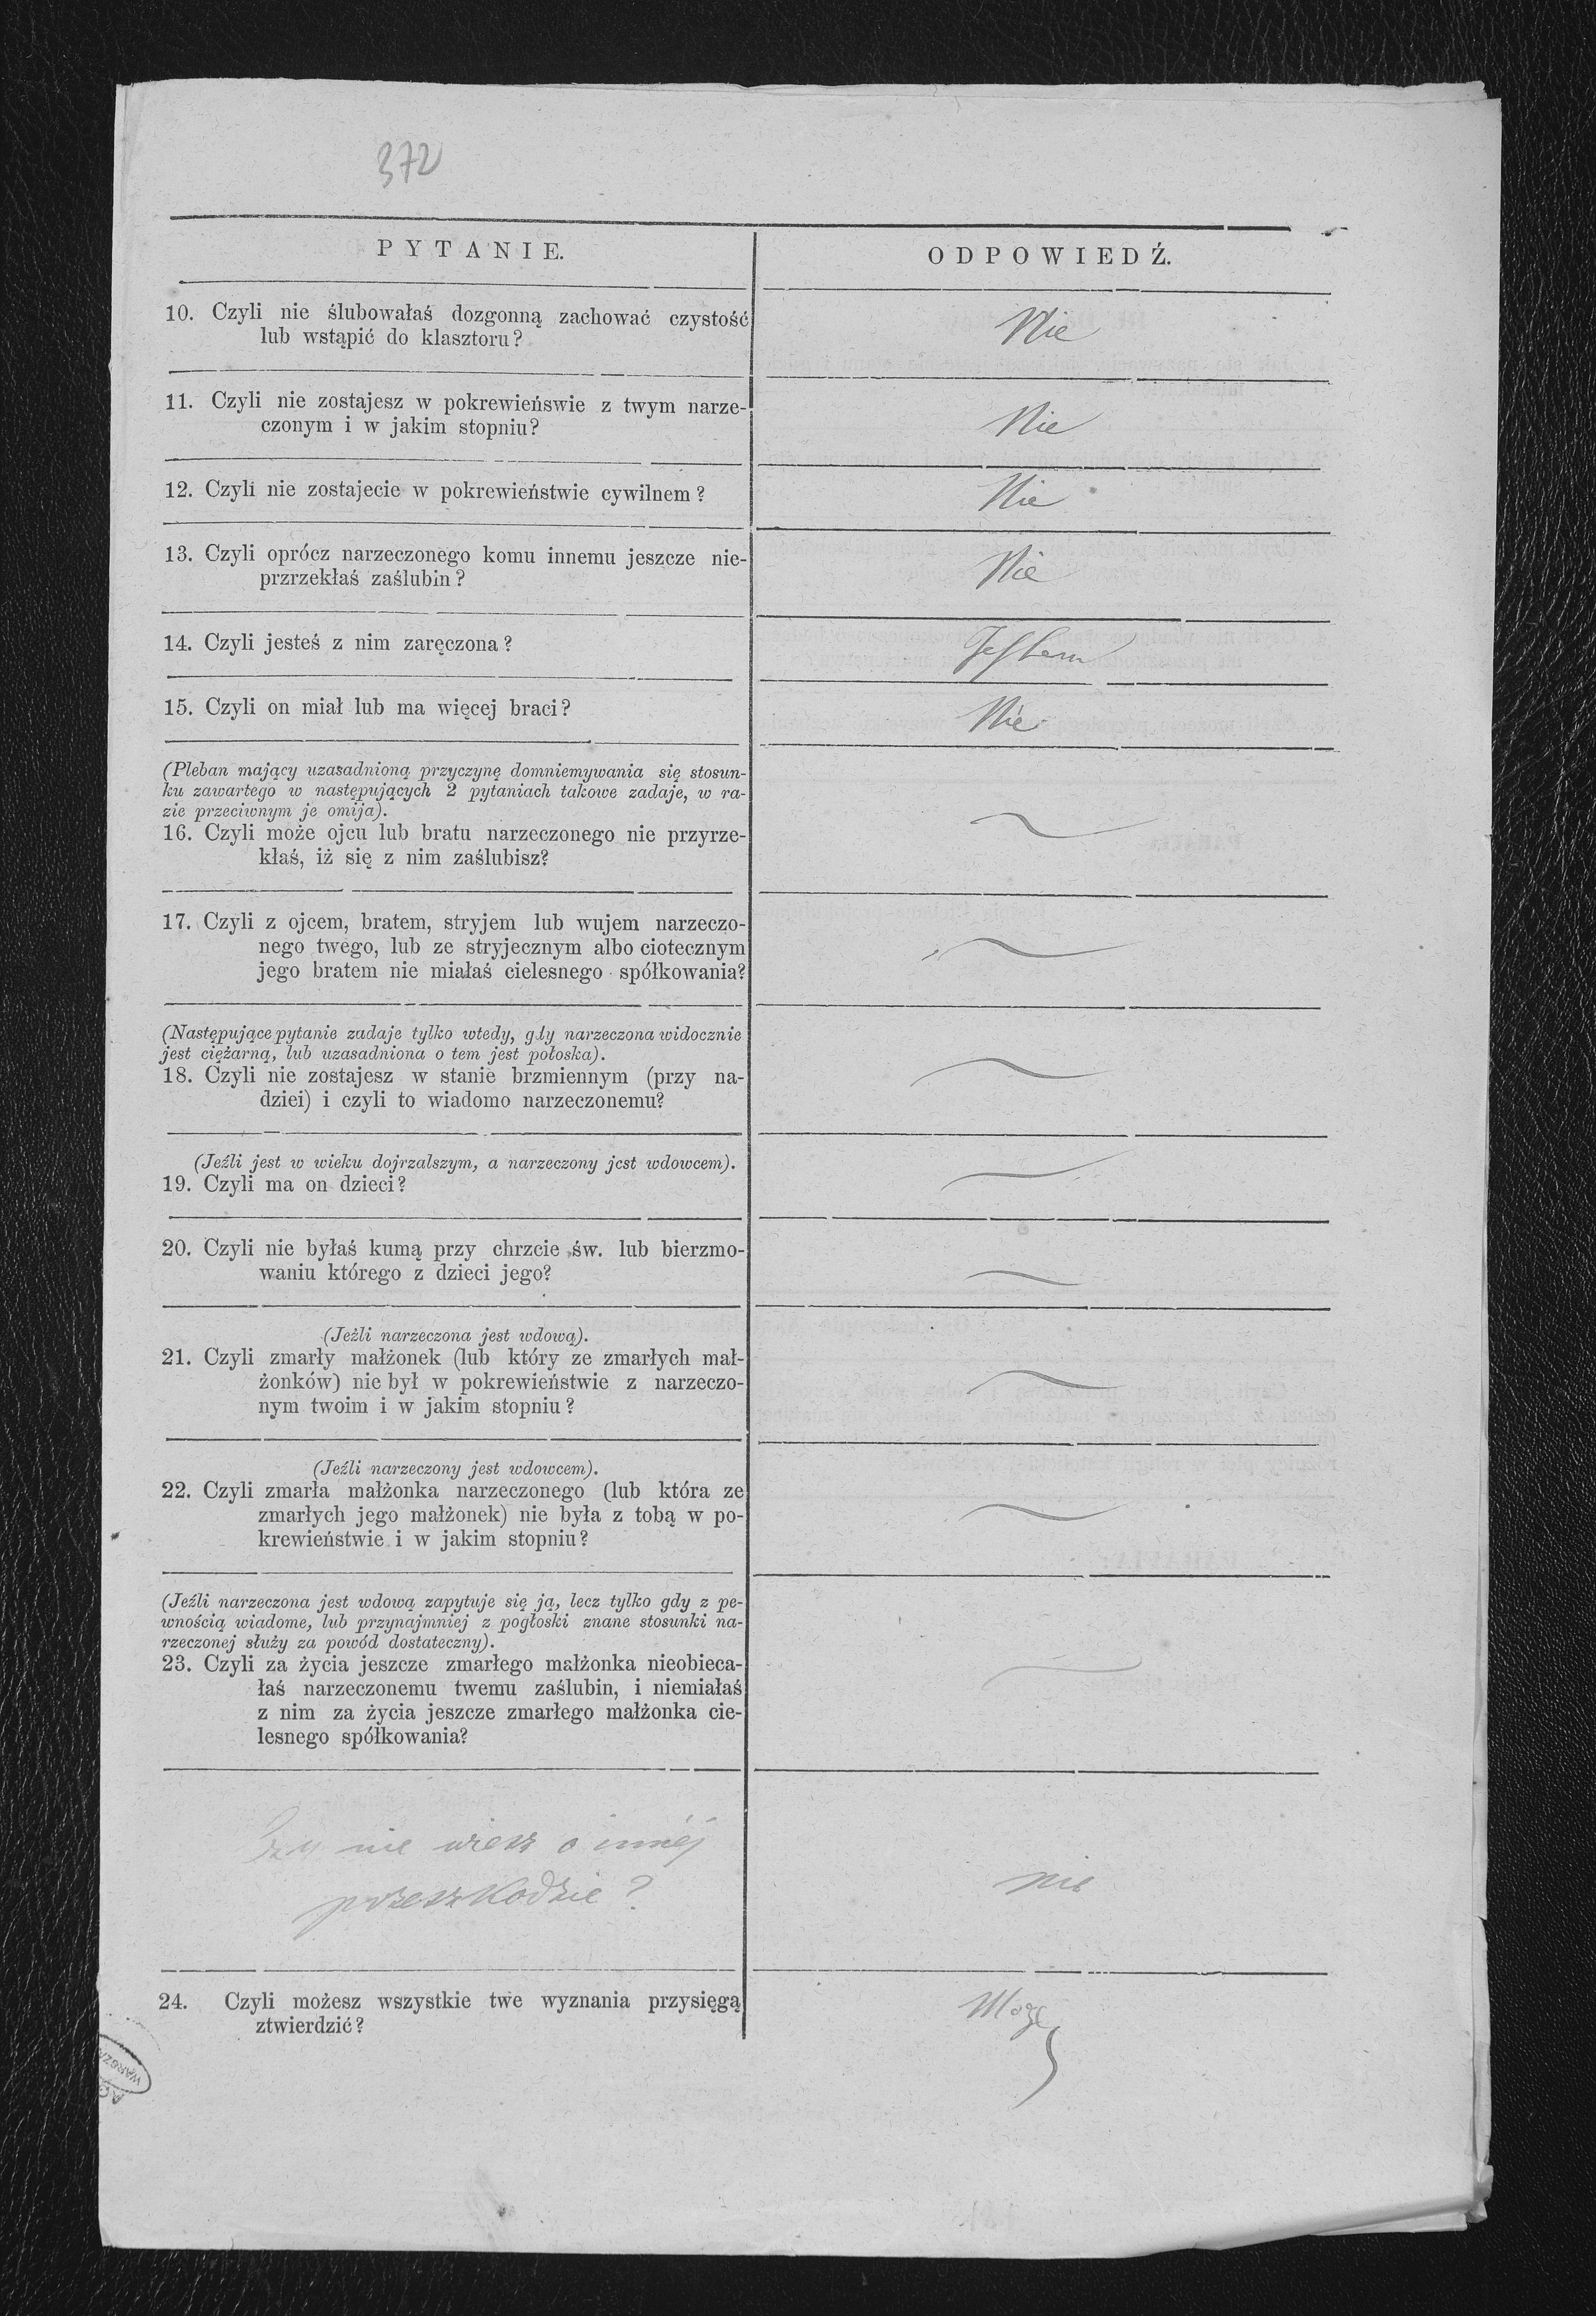 372
PYTANIE.
ODPOWIEDŹ.
10. Czyli nie ślubowałaś dozgonną zachować czystość
lub wstąpić do klasztoru?
Nie
11. Czyli nie zostajesz w pokrewieńswie z twym narze-
czonym i w jakim stopniu?
Nie
12. Czyli nie zostajecie w pokrewieństwie cywilnem?
Nie
13. Czyli oprócz narzeczonego komu innemu jeszcze nie-
przrzekłaś zaślubin?
Nie
14. Czyli jesteś z nim zaręczona?
Jestem
15. Czyli on miał lub ma więcej braci?
Nie
(Pleban mający uzasadnioną przyczynę domniemywania się stosun-
ku zawartego w następujących 2 pytaniach takowe zadaje, w ra-
zie przeciwnym je omija).
16. Czyli może ojcu lub bratu narzeczonego nie przyrze-
kłaś, iż się z nim zaślubisz?
17. Czyli z ojcem, bratem, stryjem lub wujem narzeczo-
nego twego, lub ze stryjecznym albo ciotecznym
jego bratem nie miałaś cielesnego spółkowania?
(Następujące pytanie zadaje tylko wtedy, gdy narzeczona widocznie
jest ciężarną, lub uzasadniona o tem jest połoska).
18. Czyli nie zostajesz w stanie brzmiennym (przy na-
dziei) i czyli to wiadomo narzeczonemu?
(Jeźli jest w wieku dojrzalszym, a narzeczony jest wdowcem).
19. Czyli ma on dzieci?
20. Czyli nie byłaś kumą przy chrzcie św. lub bierzmo-
waniu którego z dzieci jego?
(Jeżli narzeczona jest wdową).
21. Czyli zmarły małżonek (lub który ze zmarłych mał-
żonków) nie był w pokrewieństwie z narzeczo-
nym twoim i w jakim stopniu?
(Jeźli narzeczony jest wdowcem).
22. Czyli zmarła małżonka narzeczonego (lub która ze
zmarłych jego małżonek) nie była z tobą w po-
krewieństwie i w jakim stopniu?
(Jeźli narzeczona jest wdową zapytuje się ją, lecz tylko gdy z pe-
wnością wiadome, lub przynajmniej z pogłoski znane stosunki na-
rzeczonej służy za powód dostateczny).
23. Czyli za życia jeszcze zmarłego małżonka nieobieca-
łaś narzeczonemu twemu zaślubin, i niemiałaś
z nim za życia jeszcze zmarłego małżonka cie-
lesnego spółkowania?
Czy nie wiesz o innéj
przeszkodzie?
nie
24. Czyli możesz wszystkie twe wyznania przysięgą
ztwierdzić?
Mogę